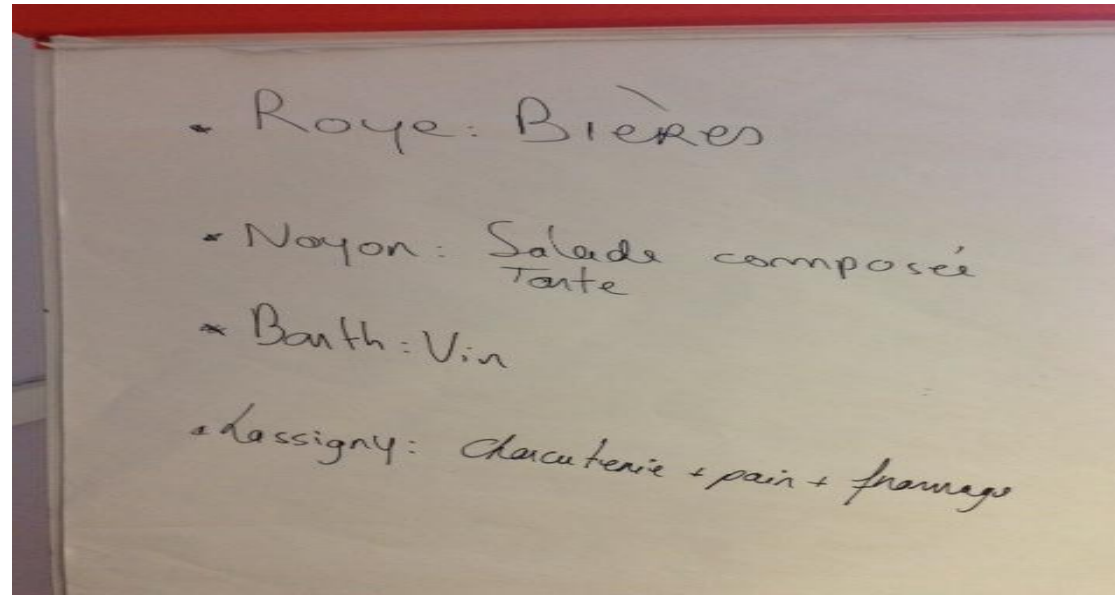 • Roye: Bières
• Noyon: Salade composée
Tarte
• Barth: Vin
• Lassigny: Charcuterie + pain + fromage